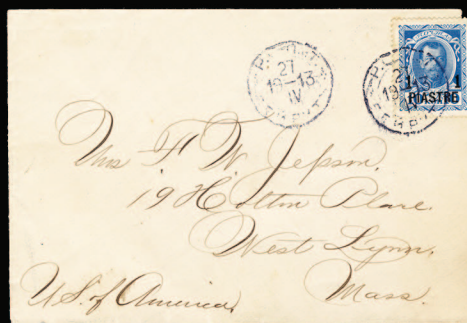 27
19-13
IV
1 1
PIASTRE
Mrs F. W. Jepson.
19 Hilton Place.
West Lynn,
Mass.
U.S. of America.